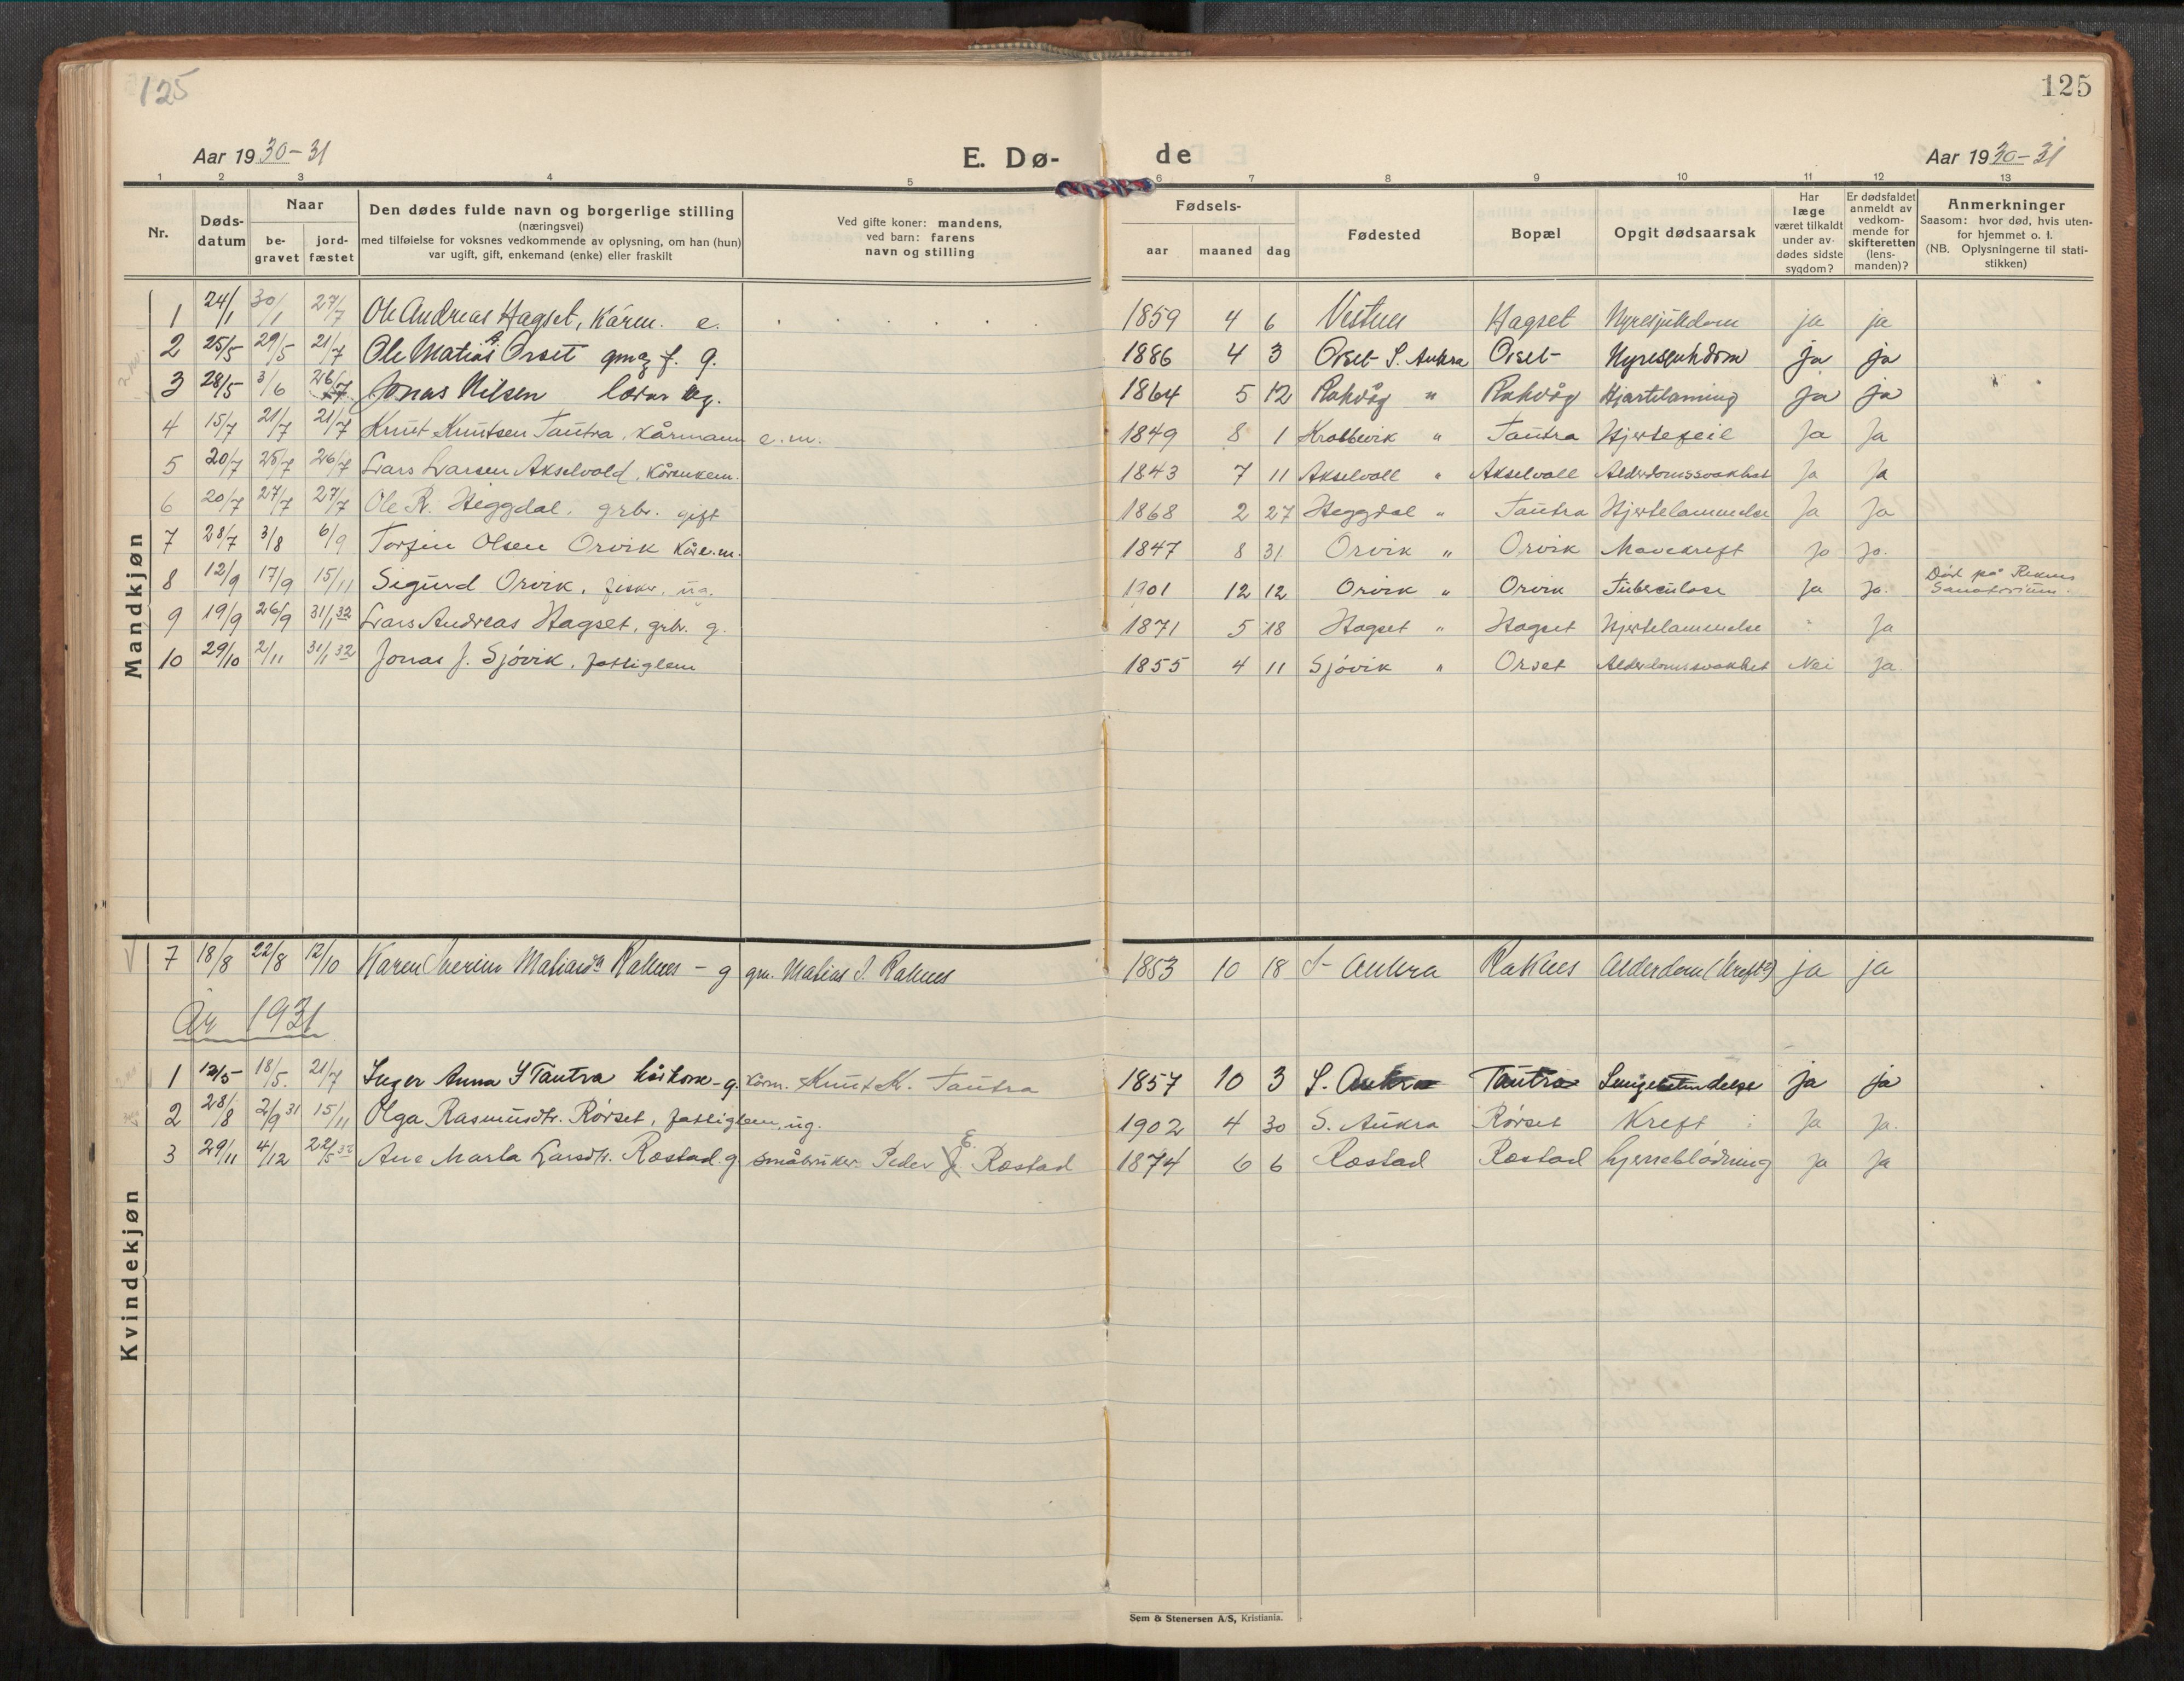 125
125
Aar 1930-31
E. Dø-
de
Aar 1930-31
1 2 3 4 5 6 7 8 9 10 11 12 13
Nr.
Døds-
datum
Naar
be-
gravet
jord-
fæstet
Den dødes fulde navn og borgerlige stilling
(næringsvei)
med tilføielse for voksnes vedkommende av oplysning, om han (hun)
var ugift, gift, enkemand (enke) eller fraskilt
Ved gifte koner: mandens,
ved barn: farens
navn og stilling
Fødsels-
aar maaned dag
Fødested
Bopæl
Opgit dødsaarsak
Har
læge
været tilkaldt
under av-
dødes sidste
sygdom?
Er dødsfaldet
anmeldt av
vedkom-
mende for
skifteretten
(lens-
manden)?
Anmerkninger
Saasom: hvor død, hvis uten-
for hjemmet o. l.
(NB. Oplysningerne til stati-
stikken)
Mandkjøn
1 24/1 30/1 27/7 Ole Andreas Hagset, Kårm. e. 1859 4 6 Vestnes Hagset Nyresjukdom ja ja
2 25/5 29/5 21/7 Ole Matias A. Orset gmag f. g. 1886 4 3 Orset S. Aukra Orset Nyresjukdom ja ja
3 28/5 3/6 26/7 Jonas Nilsen lærar ug. 1864 5 12 Rakvåg " Rakvåg Hjartelaming ja ja
4 15/7 21/7 21/7 Knut Knutsen Tautra, Kårmann e.m. 1849 8 1 Krabbevik " Tautra Hjertefeil Ja Ja
5 20/7 25/7 26/7 Lars Larsen Akselvold, Kårenkem. 1843 7 11 Akselvoll " Akselvoll Alderdomssvakhet Ja Ja
6 20/7 27/7 27/7 Ole R. Heggdal, grbr. gift 1868 2 27 Heggdal " Tautra Hjertelammelse Ja Ja
7 28/7 3/8 6/9 Torfin Olsen Orvik Kåre.m. 1847 8 31 Orvik " Orvik Mavekreft Ja Ja.
8 12/9 17/9 15/11 Sigurd Orvik, fisker, ug. 1901 12 12 Orvik " Orvik Tuberculose Ja Ja. Död på Reknes
Sanatorium.
9 19/9 26/9 31/1 32 Lars Andreas Hagset, grbr. g. 1871 5 18 Hagset " Hagset Hjertelammelse Ja
10 29/10 2/11 31/1 32 Jonas J. Sjövik, fattiglem 1855 4 11 Sjövik " Orset Alderdomssvakhet Nei Ja
Kvindekjøn
7 18/8 22/8 12/10 Karen Severine Matiasdr Raknes - g gm. Matias J. Raknes 1853 10 18 S- Aukra Raknes Alderdom (Kreft?) ja ja
År 1931
1 12/5 18/5. 21/7 Inger Anna I Tautra kårkone - g. kårm. Knut K. Tautra 1857 10 3 S. Aukra Tautra Lungebetendelse ja ja
2 28/8 2/9 31 15/11 Olga Rasmusdtr. Rörset, fattiglem, ug. 1902 4 30 S. Aukra Rörset Kreft Ja Ja.
3 29/11 4/12 22/5 32 Ane Marta Larsdtr. Rostad. g småbruker Peder E. Rostad 1874 6 6 Rostad Rostad hjerneblödning Ja Ja
Sem & Stenersen A/S, Kristiania.